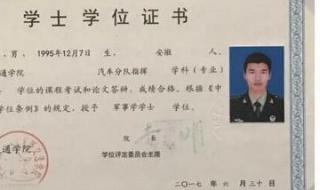 学士学位证书
，男，1995年12月7日 生， 安徽 人，
通学院 汽车分队指挥 学科（专业）
学位的课程考试和论文答辩，成绩合格。根据《中
学位条例》的规定，授予 军事学学士 学位，
院 长
学位评定委员会主席
通学院
二〇一七年 六月三十日